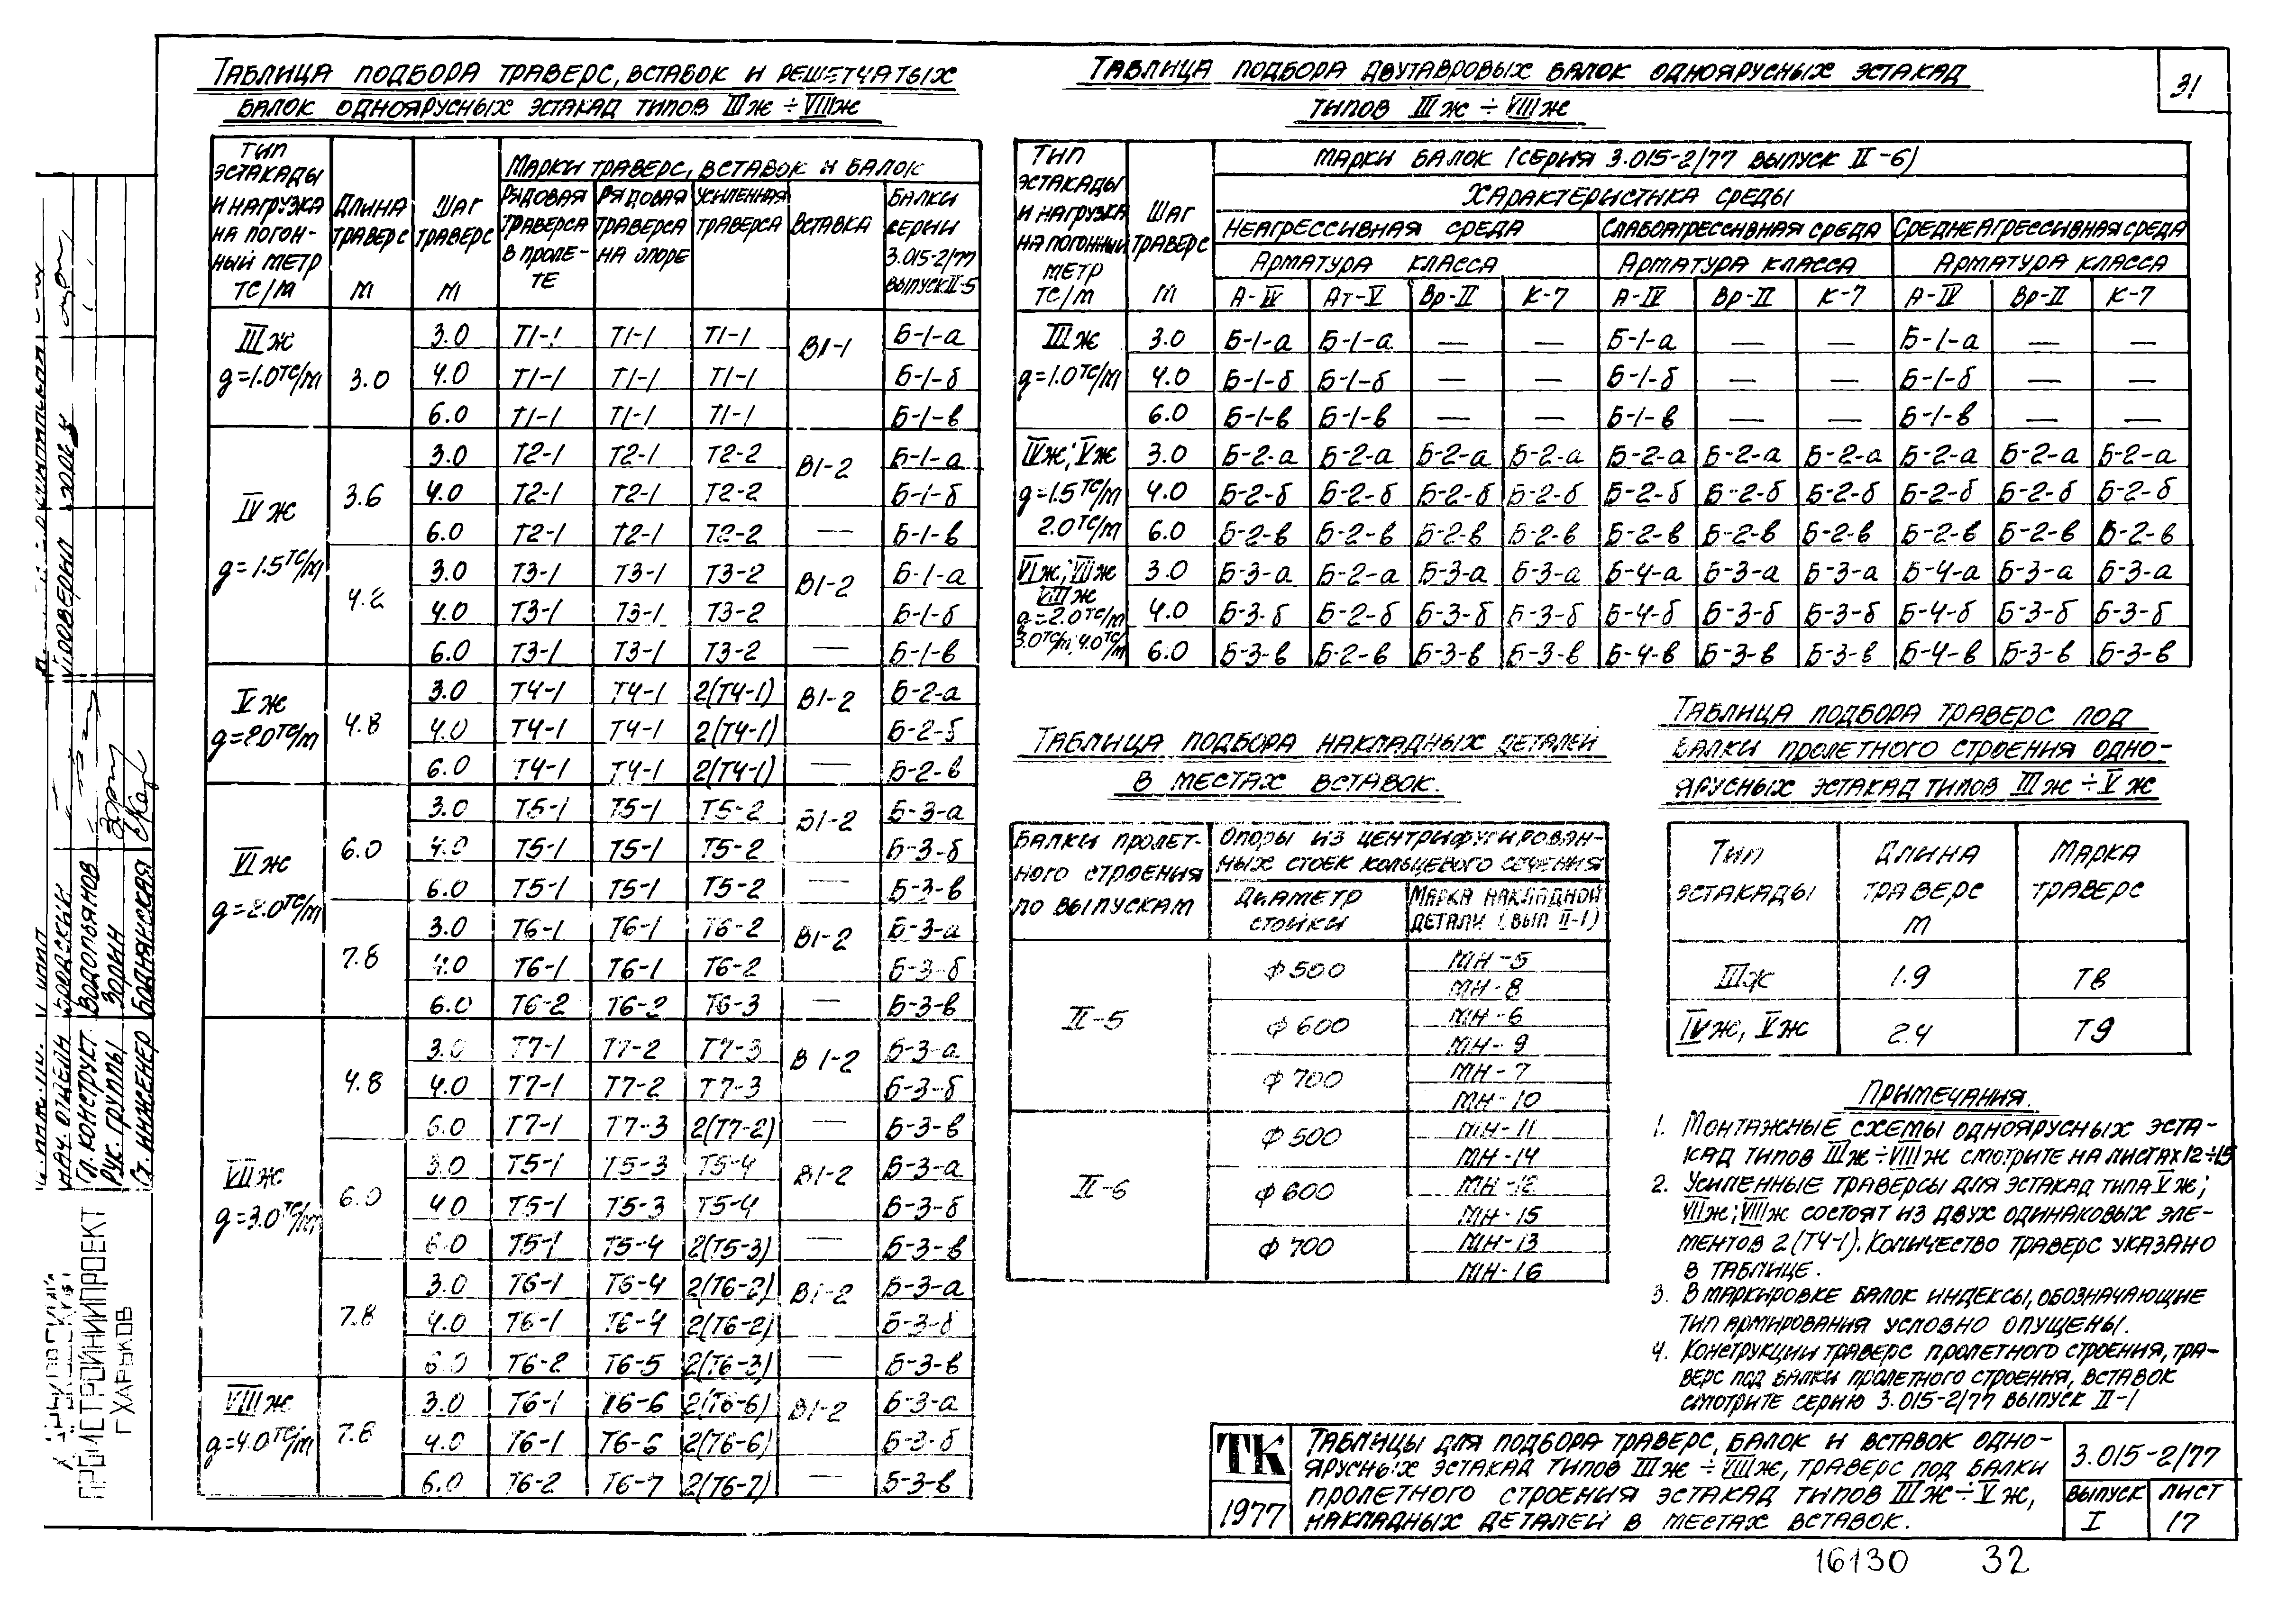 31
ТАБЛИЦА ПОДБОРА ТРАВЕРС, ВСТАВОК И РЕШЕТЧАТЫХ
БАЛОК ОДНОЯРУСНЫХ ЭСТАКАД ТИПОВ IIIж ÷ VIIIж
ТИП ЭСТАКАДЫ И НАГРУЗКА НА ПОГОН-НЫЙ МЕТР ТС/М | ДЛИНА ТРАВЕРС М | ШАГ ТРАВЕРС М | МАРКИ ТРАВЕРС, ВСТАВОК И БАЛОК
РЯДОВАЯ ТРАВЕРСА В ПРОЛЕ-ТЕ | РЯДОВАЯ ТРАВЕРСА НА ОПОРЕ | УСИЛЕННАЯ ТРАВЕРСА | ВСТАВКА | БАЛКИ СЕРИИ 3.015-2/77 ВЫПУСК II-5
IIIж g=1.0ТС/М 3.0
3.0 Т1-1 Т1-1 Т1-1 В1-1 Б-1-а
4.0 Т1-1 Т1-1 Т1-1 Б-1-б
6.0 Т1-1 Т1-1 Т1-1 Б-1-в
IVж g=1.5ТС/М 3.6
3.0 Т2-1 Т2-1 Т2-2 В1-2 Б-1-а
4.0 Т2-1 Т2-1 Т2-2 Б-1-б
6.0 Т2-1 Т2-1 Т2-2 — Б-1-в
4.2
3.0 Т3-1 Т3-1 Т3-2 В1-2 Б-1-а
4.0 Т3-1 Т3-1 Т3-2 Б-1-б
6.0 Т3-1 Т3-1 Т3-2 — Б-1-в
Vж g=2.0ТС/М 4.8
3.0 Т4-1 Т4-1 2(Т4-1) В1-2 Б-2-а
4.0 Т4-1 Т4-1 2(Т4-1) Б-2-б
6.0 Т4-1 Т4-1 2(Т4-1) — Б-2-в
VIж g=2.0ТС/М 6.0
3.0 Т5-1 Т5-1 Т5-2 В1-2 Б-3-а
4.0 Т5-1 Т5-1 Т5-2 Б-3-б
6.0 Т5-1 Т5-1 Т5-2 — Б-3-в
7.8
3.0 Т6-1 Т6-1 Т6-2 В1-2 Б-3-а
4.0 Т6-1 Т6-1 Т6-2 Б-3-б
6.0 Т6-2 Т6-2 Т6-3 — Б-3-в
VIIж g=3.0ТС/М 4.8
3.0 Т7-1 Т7-2 Т7-3 В1-2 Б-3-а
4.0 Т7-1 Т7-2 Т7-3 Б-3-б
6.0 Т7-1 Т7-3 2(Т7-2) — Б-3-в
6.0
3.0 Т5-1 Т5-3 Т5-4 В1-2 Б-3-а
4.0 Т5-1 Т5-3 Т5-4 Б-3-б
6.0 Т5-1 Т5-4 2(Т5-3) — Б-3-в
7.8
3.0 Т6-1 Т6-4 2(Т6-2) В1-2 Б-3-а
4.0 Т6-1 Т6-4 2(Т6-2) Б-3-б
6.0 Т6-2 Т6-5 2(Т6-3) — Б-3-в
VIIIж g=4.0ТС/М 7.8
3.0 Т6-1 Т6-6 2(Т6-6) В1-2 Б-3-а
4.0 Т6-1 Т6-6 2(Т6-6) Б-3-б
6.0 Т6-2 Т6-7 2(Т6-7) — Б-3-в
ТАБЛИЦА ПОДБОРА ДВУТАВРОВЫХ БАЛОК ОДНОЯРУСНЫХ ЭСТАКАД
ТИПОВ IIIж ÷ VIIIж
ТИП ЭСТАКАДЫ И НАГРУЗКА НА ПОГОННЫЙ МЕТР ТС/М | ШАГ ТРАВЕРС М | МАРКИ БАЛОК (СЕРИЯ 3.015-2/77 ВЫПУСК II-6)
ХАРАКТЕРИСТИКА СРЕДЫ
НЕАГРЕССИВНАЯ СРЕДА | СЛАБОАГРЕССИВНАЯ СРЕДА | СРЕДНЕАГРЕССИВНАЯ СРЕДА
АРМАТУРА КЛАССА | АРМАТУРА КЛАССА | АРМАТУРА КЛАССА
А-IV Ат-V Вр-II К-7 А-IV Вр-II К-7 А-IV Вр-II К-7
IIIж g=1.0ТС/М
3.0 Б-1-а Б-1-а — — Б-1-а — — Б-1-а — —
4.0 Б-1-б Б-1-б — — Б-1-б — — Б-1-б — —
6.0 Б-1-в Б-1-в — — Б-1-в — — Б-1-в — —
IVж; Vж g=1.5ТС/М 2.0ТС/М
3.0 Б-2-а Б-2-а Б-2-а Б-2-а Б-2-а Б-2-а Б-2-а Б-2-а Б-2-а Б-2-а
4.0 Б-2-б Б-2-б Б-2-б Б-2-б Б-2-б Б-2-б Б-2-б Б-2-б Б-2-б Б-2-б
6.0 Б-2-в Б-2-в Б-2-в Б-2-в Б-2-в Б-2-в Б-2-в Б-2-в Б-2-в Б-2-в
VIж; VIIж VIIIж g=2.0ТС/М 3.0ТС/М; 4.0ТС/М
3.0 Б-3-а Б-2-а Б-3-а Б-3-а Б-4-а Б-3-а Б-3-а Б-4-а Б-3-а Б-3-а
4.0 Б-3-б Б-2-б Б-3-б Б-3-б Б-4-б Б-3-б Б-3-б Б-4-б Б-3-б Б-3-б
6.0 Б-3-в Б-2-в Б-3-в Б-3-в Б-4-в Б-3-в Б-3-в Б-4-в Б-3-в Б-3-в
ТАБЛИЦА ПОДБОРА НАКЛАДНЫХ ДЕТАЛЕЙ
В МЕСТАХ ВСТАВОК.
БАЛКИ ПРОЛЕТ-НОГО СТРОЕНИЯ ПО ВЫПУСКАМ | ОПОРЫ ИЗ ЦЕНТРИФУГИРОВАН-НЫХ СТОЕК КОЛЬЦЕВОГО СЕЧЕНИЯ
ДИАМЕТР СТОЙКИ | МАРКА НАКЛАДНОЙ ДЕТАЛИ (ВЫП II-1)
II-5
ϕ500 МН-5
МН-8
ϕ600 МН-6
МН-9
ϕ700 МН-7
МН-10
II-6
ϕ500 МН-11
МН-14
ϕ600 МН-12
МН-15
ϕ700 МН-13
МН-16
ТАБЛИЦА ПОДБОРА ТРАВЕРС ПОД
БАЛКИ ПРОЛЕТНОГО СТРОЕНИЯ ОДНО-
ЯРУСНЫХ ЭСТАКАД ТИПОВ IIIж ÷ Vж
ТИП ЭСТАКАДЫ | ДЛИНА ТРАВЕРС М | МАРКА ТРАВЕРС
IIIж 1.9 Т8
IVж, Vж 2.4 Т9
ПРИМЕЧАНИЯ.
1. МОНТАЖНЫЕ СХЕМЫ ОДНОЯРУСНЫХ ЭСТА-
КАД ТИПОВ IIIж÷VIIIж СМОТРИТЕ НА ЛИСТАХ 12÷15
2. УСИЛЕННЫЕ ТРАВЕРСЫ ДЛЯ ЭСТАКАД ТИПА Vж;
VIIж; VIIIж СОСТОЯТ ИЗ ДВУХ ОДИНАКОВЫХ ЭЛЕ-
МЕНТОВ 2(Т4-1). КОЛИЧЕСТВО ТРАВЕРС УКАЗАНО
В ТАБЛИЦЕ.
3. В МАРКИРОВКЕ БАЛОК ИНДЕКСЫ, ОБОЗНАЧАЮЩИЕ
ТИП АРМИРОВАНИЯ УСЛОВНО ОПУЩЕНЫ.
4. КОНСТРУКЦИИ ТРАВЕРС ПРОЛЕТНОГО СТРОЕНИЯ, ТРА-
ВЕРС ПОД БАЛКИ ПРОЛЕТНОГО СТРОЕНИЯ, ВСТАВОК
СМОТРИТЕ СЕРИЮ 3.015-2/77 ВЫПУСК II-1
ТК
1977
ТАБЛИЦЫ ДЛЯ ПОДБОРА ТРАВЕРС, БАЛОК И ВСТАВОК ОДНО-
ЯРУСНЫХ ЭСТАКАД ТИПОВ IIIж ÷ VIIIж, ТРАВЕРС ПОД БАЛКИ
ПРОЛЕТНОГО СТРОЕНИЯ ЭСТАКАД ТИПОВ IIIж ÷ Vж,
НАКЛАДНЫХ ДЕТАЛЕЙ В МЕСТАХ ВСТАВОК.
3.015-2/77
ВЫПУСК ЛИСТ
I 17
16130 32
НАЧ. ОТДЕЛА БРОДСКИЙ
ГЛ. КОНСТРУКТ. ВОДОПЬЯНОВ
РУК. ГРУППЫ ЗОРИН
СТ. ИНЖЕНЕР БОДНЯНСКАЯ
ПРОВЕРИЛ
ПРОМСТРОЙНИИПРОЕКТ
Г ХАРЬКОВ